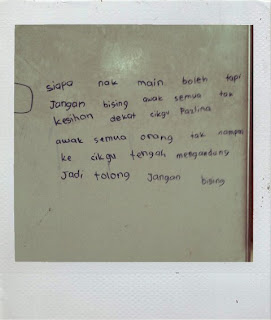 siapa nak main boleh tapi
Jangan bising awak semua tak
kesihan dekat cikgu Paulina
awak semua orang tak nampak
ke cikgu tengah mengandung
Jadi tolong Jangan bising